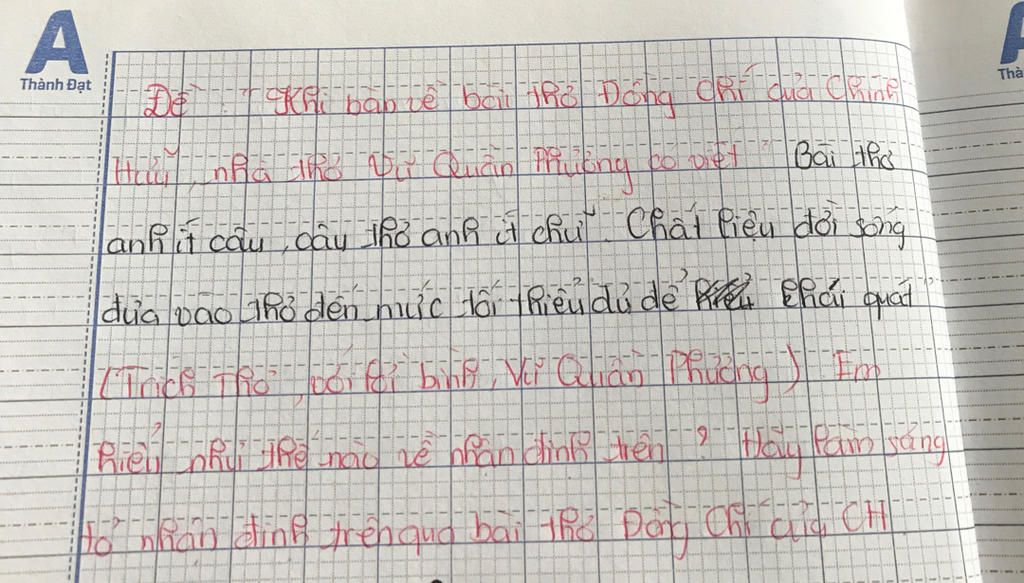 A
Thành Đạt
Thà
Đề : " Khi bàn về bài thơ Đồng Chí của Chính
Hữu, nhà thơ Vũ Quần Phương có viết " Bài thơ
anh ít câu, câu thơ anh ít chữ. Chất liệu đời sống
đưa vào thơ đến mức tối thiểu đủ để khái quát"
(Trích Thơ, với lời bình, Vũ Quần Phương) Em
hiểu như thế nào về nhận định trên ? Hãy làm sáng
tỏ nhận định trên qua bài thơ Đồng Chí của CH